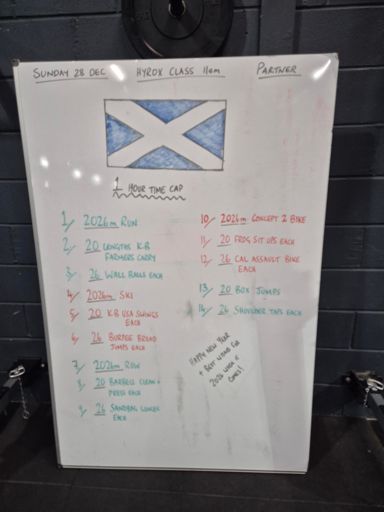 SUNDAY 28 DEC HYROX CLASS 11am PARTNER
1 HOUR TIME CAP
1/ 2026m RUN
2/ 20 LENGTHS K.B
FARMERS CARRY
3/ 26 WALL BALLS EACH
4/ 2026m SKI
5/ 20 K.B USA SWINGS
EACH
6/ 26 BURPEE BROAD
JUMPS EACH
7/ 2026m ROW
8/ 20 BARBELL CLEAN +
PRESS EACH
9/ 26 SANDBAG LUNGES
EACH
10/ 2026m CONCEPT 2 BIKE
11/ 20 FROG SIT UPS EACH
12/ 26 CAL ASSAULT BIKE
EACH
13/ 20 BOX JUMPS
14/ 26 SHOULDER TAPS EACH
HAPPY NEW YEAR
+ BEST WISHES FOR
2026 WHEN IT
COMES!